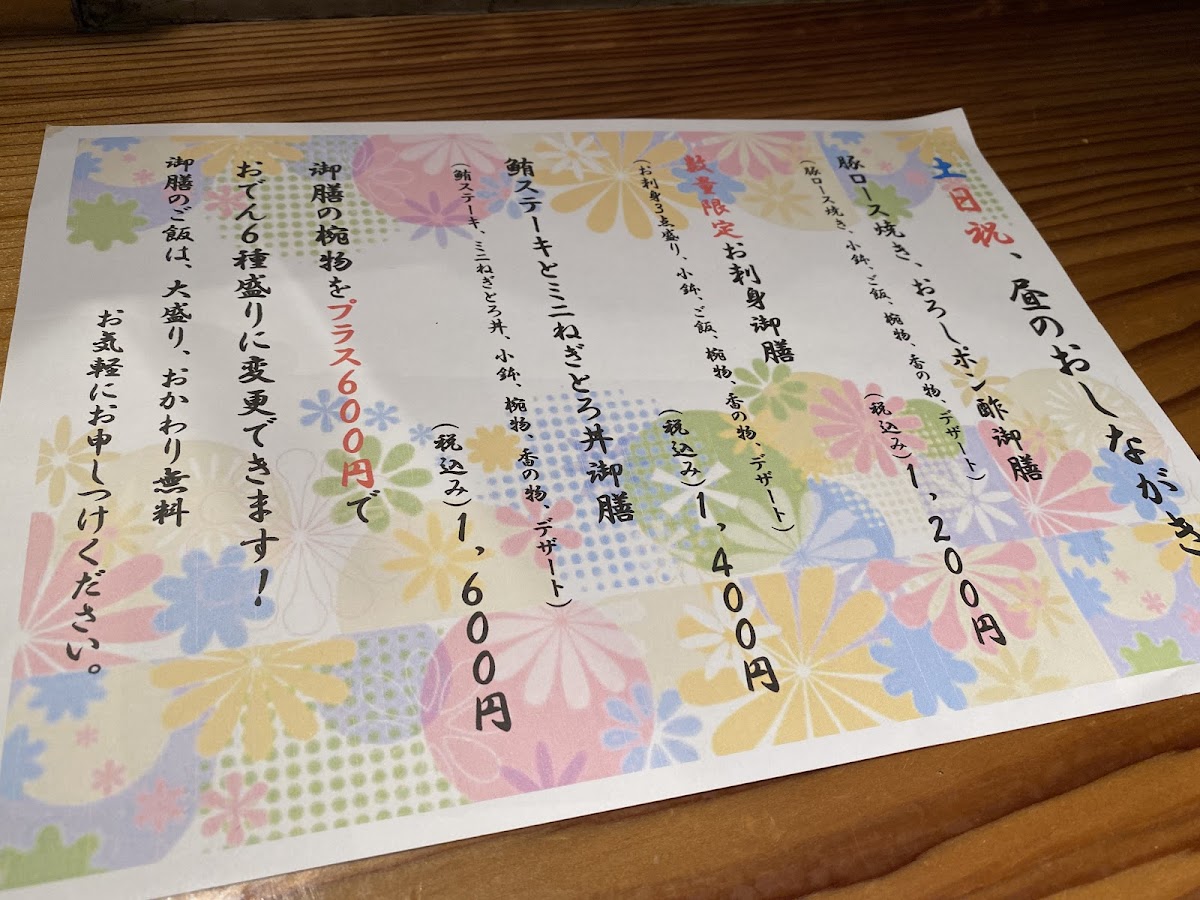 土日祝、昼のおしながき
豚ロース焼き、おろしポン酢御膳
(豚ロース焼き、小鉢、ご飯、椀物、香の物、デザート)
(税込み)1,200円
数量限定お刺身御膳
(お刺身3点盛り、小鉢、ご飯、椀物、香の物、デザート)
(税込み)1,400円
鮪ステーキとミニねぎとろ丼御膳
(鮪ステーキ、ミニねぎとろ丼、小鉢、椀物、香の物、デザート)
(税込み)1,600円
御膳の椀物をプラス600円で
おでん6種盛りに変更できます!
御膳のご飯は、大盛り、おかわり無料
お気軽にお申しつけください。